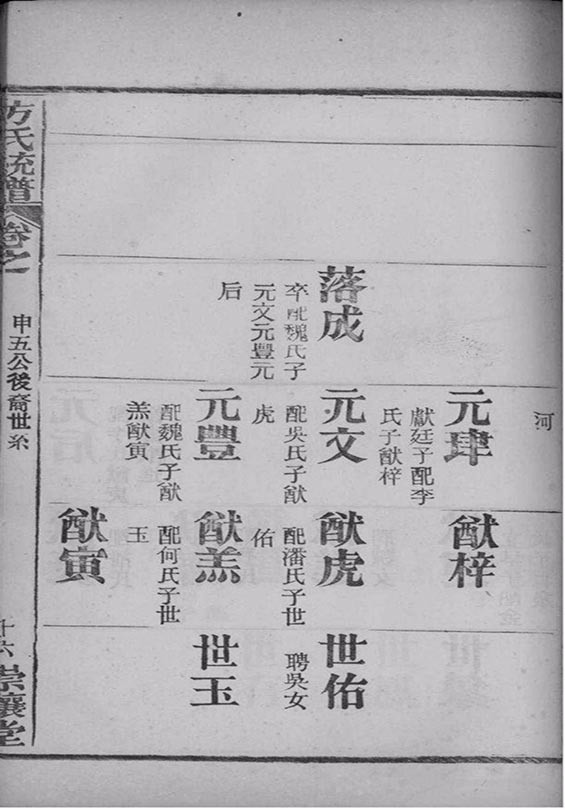 落成
卒配魏氏子
元文元豐元
后
河
元肆
獻廷子配李
氏子猷梓
元文
配吳氏子猷
虎
元豐
配魏氏子猷
羔猷寅
猷梓
猷虎
配潘氏子世
佑
猷羔
配何氏子世
玉
猷寅
世佑
聘吳女
世玉
方氏統譜
卷之
申五公後裔世系
十六
崇讓堂